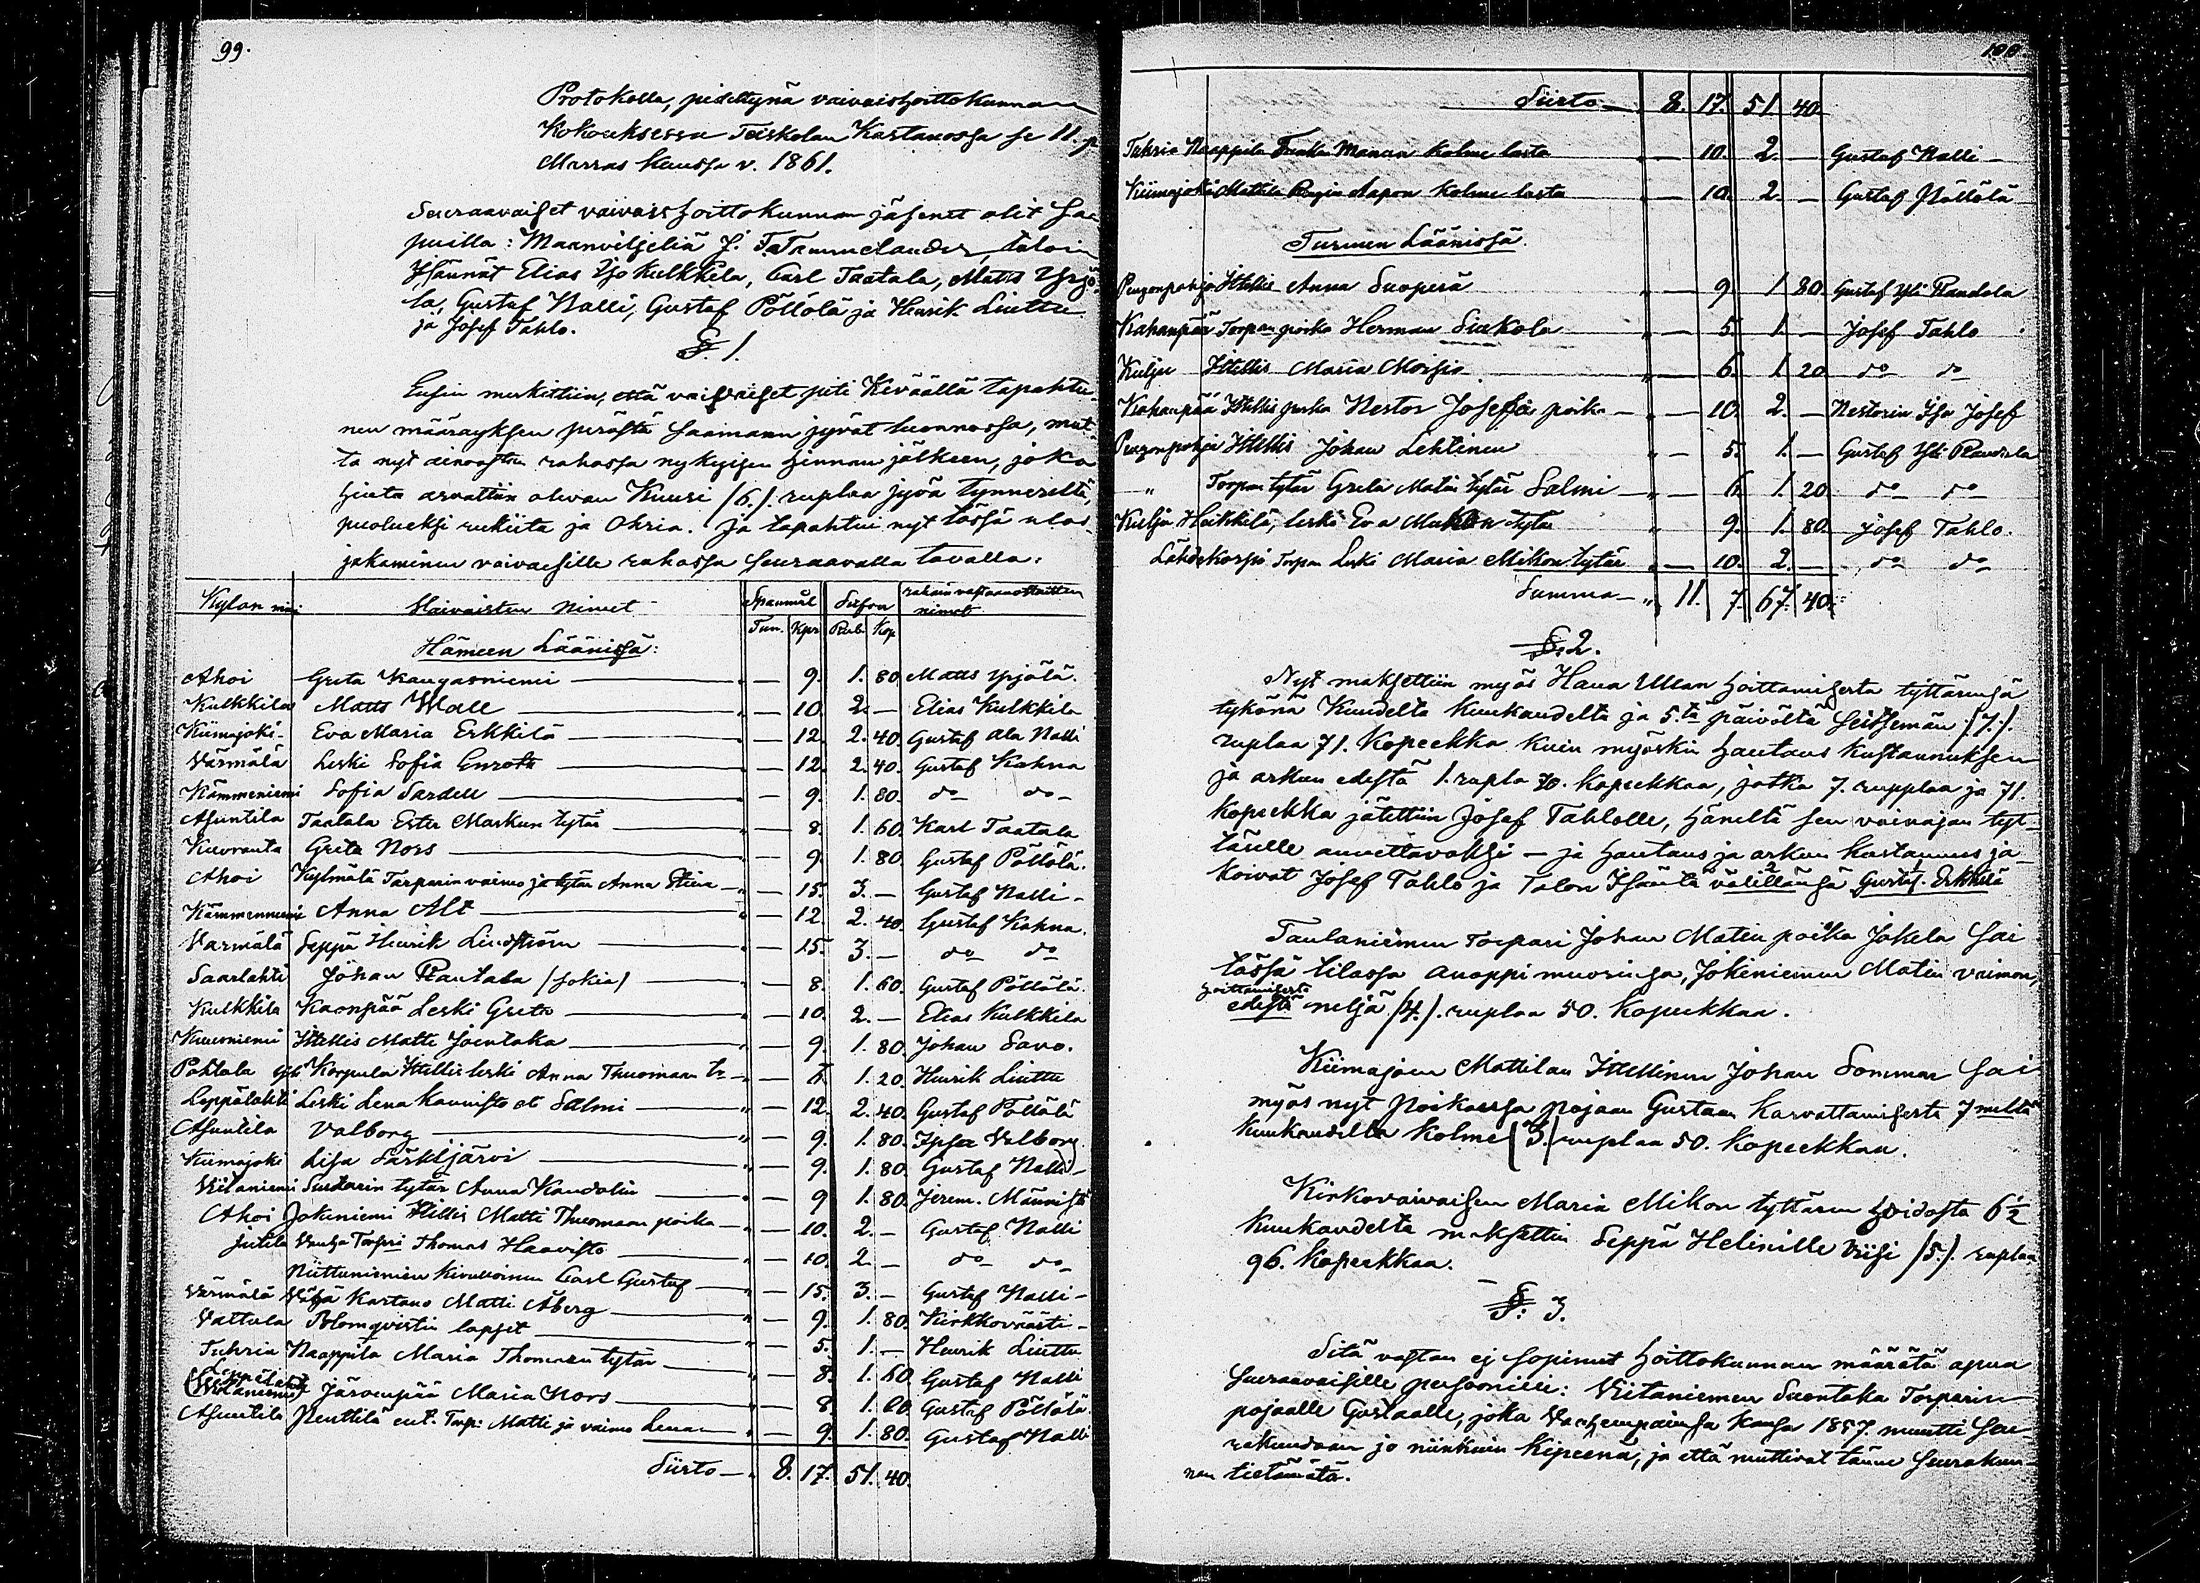 99.
Protokolla, pidettynä vaivaishoittokunnan
Kokouksessa Teiskolan Kartanossa se 11. p
Marras kuussa v. 1861.
Seuraavaiset vaivaishoittokunnan jäsenet olit sa
puilla: Maanviljeliä J. Tammelander, taloin
Isännät Elias Yso Kulkkila, Carl Taatala, Matts Yrjö-
la, Gustaf Nalli, Gustaf Pöllölä ja Henrik Liuttu
ja Josef Tahlo.
§. 1.
Ensin merkittiin, että vaivaiset piti Keväällä tapahtu-
nen määräyksen perästä saamaan jyvät luonnossa, mut-
ta nyt ainoastan rahassa nykyisen hinnan jälkeen, joka
hinta arvattiin olevan Kuusi /6./. ruplaa jyvä tynneriltä,
puoleksi rukiita ja Ohria. Ja tapahtui nyt tässä ulos-
jakaminen vaivaisille rahassa seuraavalla tavalla:
Kylän nimi Vaivaisten Nimet Spannmål Siifra rahain vastaanottaitten nimet
Tun. Kpr Rub. Kop
Hämeen Läänissä:
Ahoi Greta Kangasniemi " — 9. 1. 80 Matts Yrjölä.
Kulkkila Matts Wall " — 10. 2. — Elias Kulkkila
Kiimajoki Eva Maria Erkkilä " — 12. 2. 40. Gustaf Ala Nalli
Värmälä Leski Sofia Enroth " — 12. 2. 40. Gustaf Kahna
Kämmeniemi Sofia Sardell " — 9. 1. 80. do do
Asuntila Taatala Ester Markun tytär " — 8. 1. 60. Karl Taatala
Kuoranta Greta Nors " — 9. 1. 80. Gustaf Pöllölä.
Ahoi Kylmälä Torparin vaimo ja tytär Anna Stina " — 15. 3. — Gustaf Nalli
Kämmenniemi Anna Alt " — 12. 2. 40. Gustaf Kahna.
Varmälä Seppä Henrik Lindström " — 15. 3. — do do
Saarlahti Johan Rautala /sokia/ " — 8. 1. 60. Gustaf Pöllölä.
Kulkkila Kaonpää Leski Greta " — 10. 2. — Elias Kulkkila
Kuusniemi Itellis Matti Jointaka " — 9. 1. 80. Johan Savo.
Pohtola Yli Korpula Itellis leski Anna Thuomaan tr " — 6. 1. 20. Henrik Liuttu
Leppälahti Leski Lena Kaunisto et Salmi " — 12. 2. 40. Gustaf Pöllölä
Asuntila Valborg " — 9. 1. 80. Ipsa Valborg
Kiimajoki Lisa Särkijärvi " — 9. 1. 80. Gustaf Nalli
Viitaniemi Suutarin tytär Anna Kandolin " — 9. 1. 80. Jerem. Männistö
Ahoi Jokiniemi Itellis Matti Thuomaan poika " — 10. 2. — Gustaf Nalli
Jutila Torpari Thomas Haavisto " — 10. 2. — do do
Niittuniemen Kivulloinen Carl Gustaf " — 15. 3. — Gustaf Nalli
Värmälä Vähä Kartano Matti Åberg " — 9. 1. 80. Kirkkoväärti
Vattula Blomqvistin lapset " — 5. 1. — Henrik Liuttu
Tuhria Naappila Maria Thomaan tytär " — 8. 1. 60. Gustaf Nalli
Leppälahti
(Viitaniemi) Järvenpää Maria Nors " — 8. 1. 60 Gustaf Pöllölä.
Asuntila Penttilä ent. Torp: Matti ja vaimo Lena " — 9. 1. 80. Gustaf Nalli
Siirto " 8. 17. 51. 40.
100
Siirto " 8. 17. 51. 40
Tuhria Naappila Manan kolme lasta " — 10. 2. — Gustaf Nalli
Kiimajoki Mattila Aapon kolme lasta " — 10. 2. — Gustaf Pöllölä
Turun Läänissä.
Itellis Anna Suoperä " — 9. 1. 80. Gustaf Yli Randala
Kahanpää Torpan poika Herman Siukola " — 5. 1. — Josef Tahlo
Kulju Itellis Maria Moisio " — 6. 1. 20 do do
Kahanpää Itellis poika Nestor Josefin poika " — 10. 2. — Nestorin Isä Josef
Itellis Johan Lehtinen " — 5. 1. — Gustaf Yli Randala
" Torpan tytär Greta Matin tytär Salmi " — 6. 1. 20 do do
Kulju Heikkilä, leski Eva tytär " — 9. 1. 80. Josef Tahlo.
Lähdekorpi Torpan Leski Maria Mikon tytär " — 10. 2. — do do
Summa " 11. 7. 67. 40.
§. 2.
Nyt maksettiin myös Hana Ullan hoittamisesta tyttärensä
tykönä Kuudelta kuukaudelta ja 5.tä päivältä seittemän /7./.
ruplaa 71. Kopeekka kuin myöskin hautaus kustannuksen
ja arkun edestä 1. rupla 70. kopeekkaa, jotka 7. rupplaa ja 71.
kopeekka jätettiin Josef Tahlolle, häneltä sen vainajan tyt-
tärelle annettavaksi — ja hautaus ja arkun kustannus ja-
koivat Josef Tahlo ja Talon Isäntä välillänsä Gustaf. Erkkilä
Taulaniemen Torpari Johan Matin poika Jokela sai
tässä tilassa anoppi muorinsa, Jokiniemen Matin vaimon,
hoittamisesta
edestä neljä /4./. ruplaa 50. Kopeekkaa.
Kiimajoen Mattilan Itellinen Johan Sommar sai
myös nyt Poikaissa pojaan Gustaan kasvattamisesta 7 mältä
kuukaudelta kolme /3./ ruplaa 50. kopeekkaa.
Kirkovaivaisen Maria Mikon tyttären hoidosta 6 1/2
kuukaudelta maksettiin Seppä Helinille viisi /5./. ruplaa
96. kopeekkaa.
§. 3.
Sitä vastan ej sopinut hoittokunnan määrätä apua
seuraavaisille persoonille: Viitaniemen Suontaka Torparin
pojaalle Gustaalle, joka Vanhempainsa kansa 1857. muutti seu-
rakundaan jo niinkuin kipeenä, ja että muttivat tänne seurakun-
nan tietämätä.